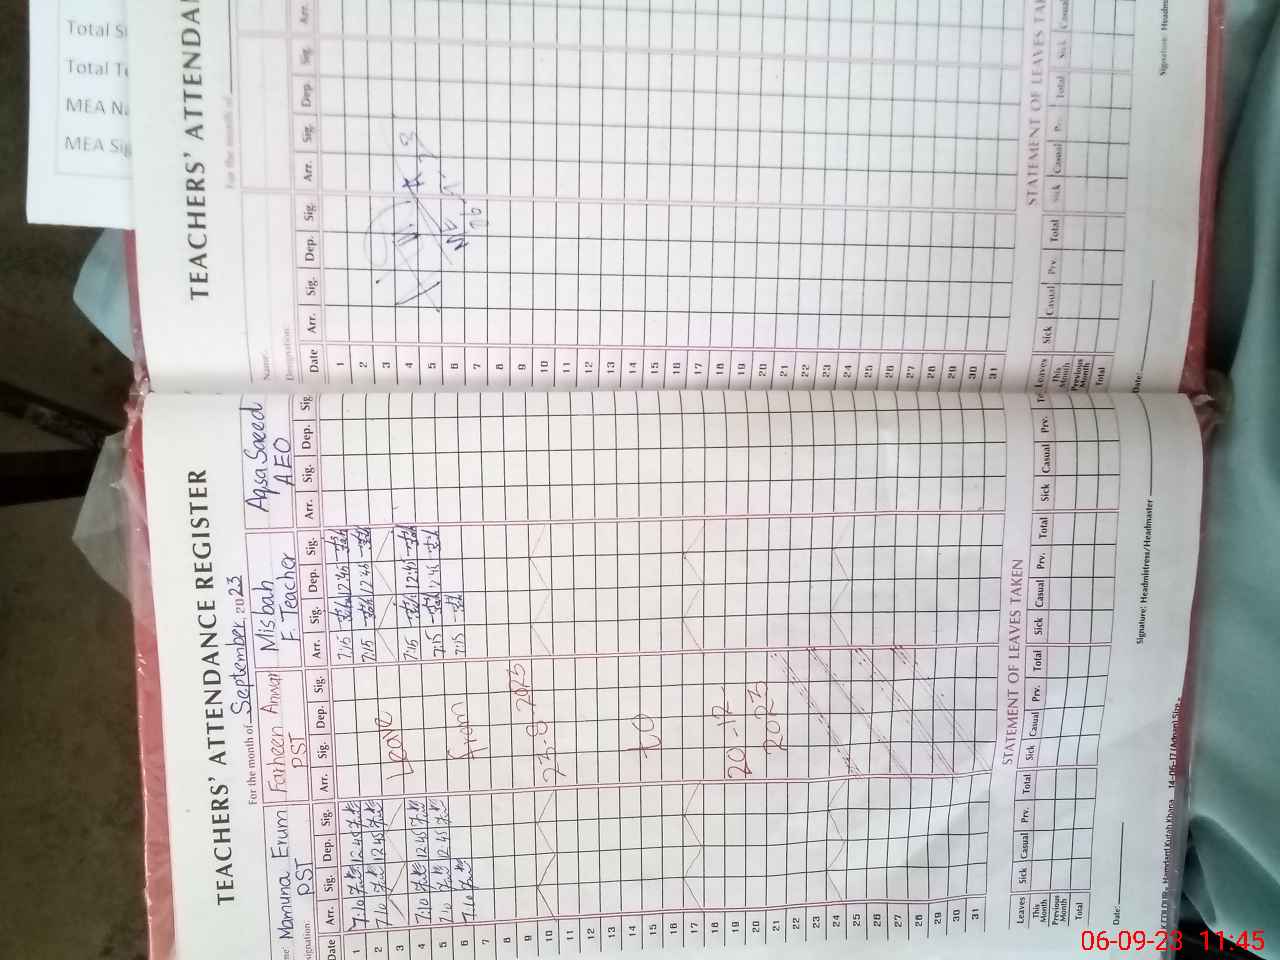 TEACHERS' ATTENDANCE REGISTER
For the month of September 2023
Mamuna Erum Farheen Anwar Misbah Aqsa Saeed
PST PST F. Teacher AEO
Date Arr. Sig. Dep. Sig. Arr. Sig. Dep. Sig. Arr. Sig. Dep. Sig. Arr. Sig. Dep. Sig.
1 7:10 12:45 7:15 12:45
2 7:10 12:45 7:15 12:45
3 Leave
4 7:10 12:45 7:15 12:45
5 7:10 12:45 7:15 12:45
6 7:10 from 7:15
7
8
9 23-8-2023
10
11
12
13
14 to
15
16
17
18 20-12-
19
20 2023
21
22
23
24
25
26
27
28
29
30
31
STATEMENT OF LEAVES TAKEN
Leaves Sick Casual Prv. Total Sick Casual Prv. Total Sick Casual Prv. Total Sick Casual Prv.
This Month
Previous Month
Total
Date:
Signature: Headmistress/Headmaster
TEACHERS' ATTENDAN
For the month of
Name:
Designation:
Date Arr. Sig. Dep. Sig. Arr. Sig. Dep. Sig. Arr.
1
2
3
4
5
6
7
8
9
10
11
12
13
14
15
16
17
18
19
20
21
22
23
24
25
26
27
28
29
30
31
STATEMENT OF LEAVES TA
Leaves Sick Casual Prv. Total Sick Casual Total Sick Casual
This Month
Previous Month
Total
Date:
Signature: Headm
Total
Total
MEA
MEA
06-09-23 11:45